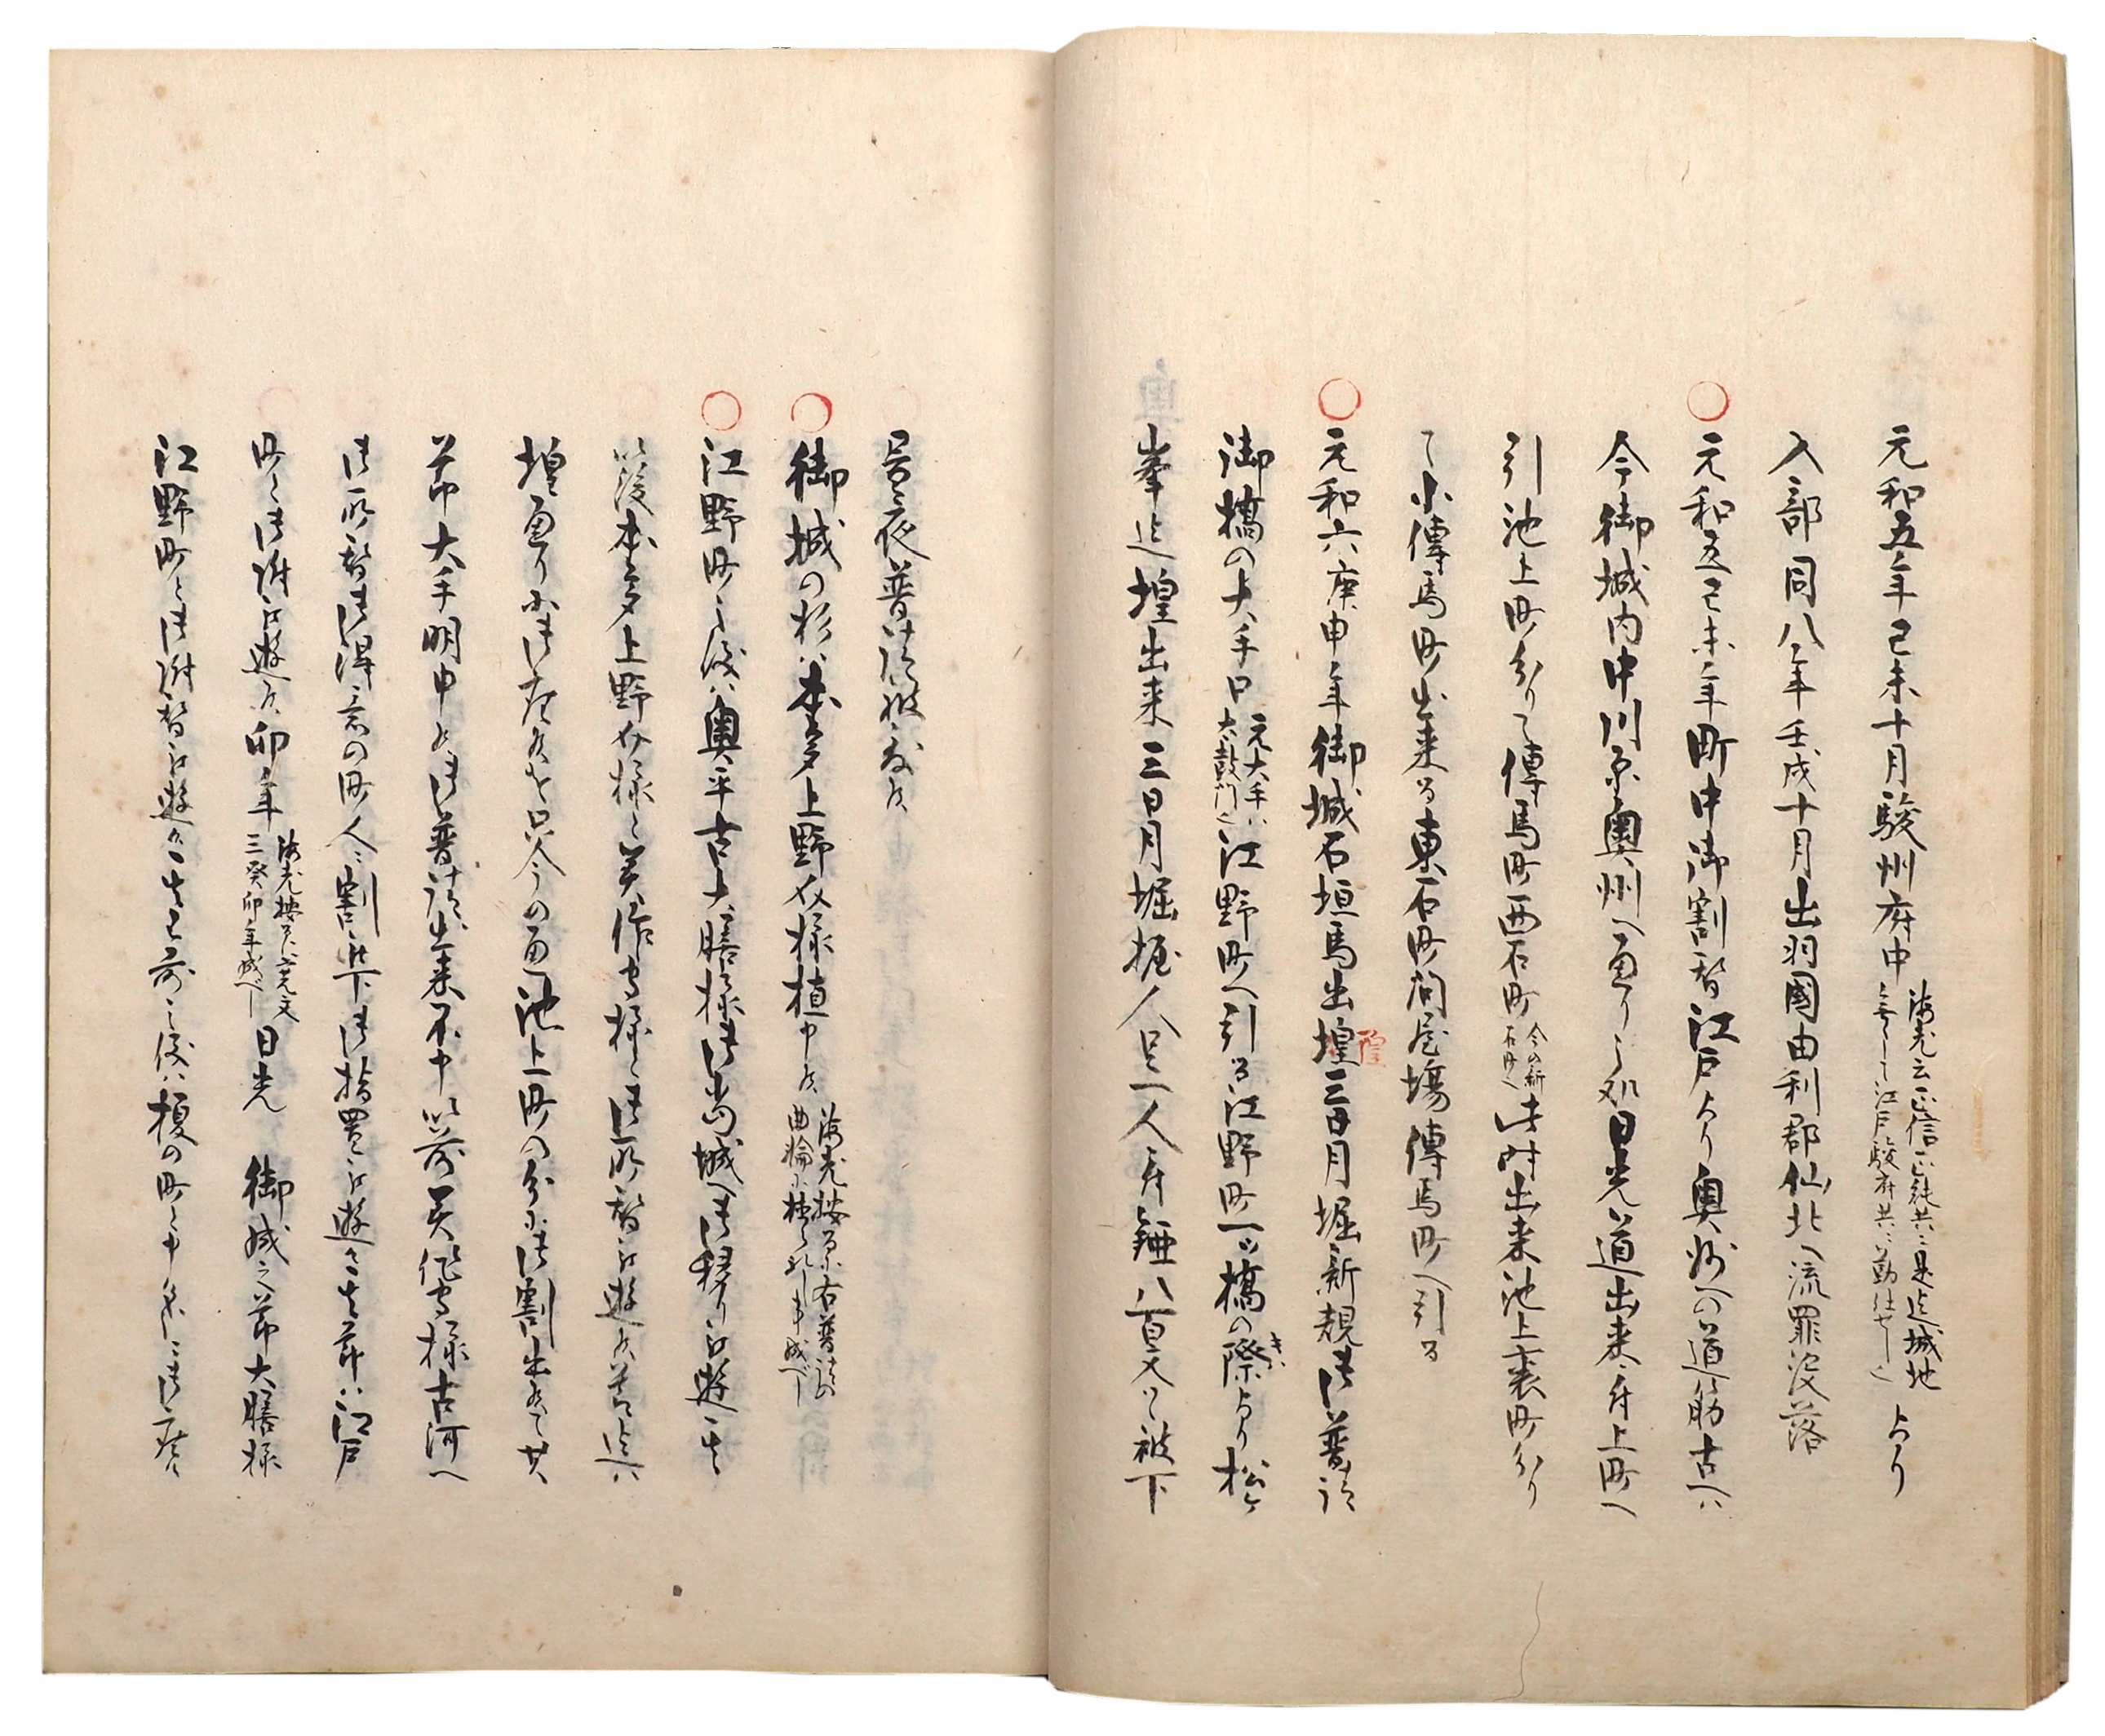 元和五年己未十月駿州府中
海老云正信正純共ニ是迄城地
無して江戸駿府共ニ勤仕せし也
より
入部同八年壬戌十月出羽國由利郡仙北へ流罪没落
○元和五己未年町中御割替江戸より奥州への道筋古へハ
今御城内中川原奥州へ通りし処日光道出来ニ付上町へ
引池上町分りて傳馬町西石町
今の新
石町也
此時出来池上裏町分り
て小傳馬町出来る東石町問屋場傳馬町へ引る
○元和六庚申年御城石垣馬出堭三日月堀新規御普請
隍
御橋の大手口
元大手ハ
太鼓門也
江野町へ引る江野町一ツ橋の際より松ケ
きハ
峯迄堭出来三日月堀掘人足一人ニ付錏八百文ツヽ被下
昼夜普請被致候
○御城の杉ハ本多上野介様植申候
海老按るに右普請の
曲輪に植られし事成べし
○江野町之儀ハ奥平古大膳様御當城へ御移り被遊其
以後本多上野介様美作守様迄御所替被遊候節迄ハ
堭通りに御座候を只今の通池上町の分に御割出候て其
節大手明申候御普請出来不申以前美作守様古河へ
御所替御得意の町人ニ割被下御指置被遊候其節ハ江戸
町へ御附被遊候卯年
海老按るに寛文
三癸卯年成べし
日光 御成之節大膳様
江野町へ御附替被遊候其已前之儀ハ榎の町と申名ニ御座候